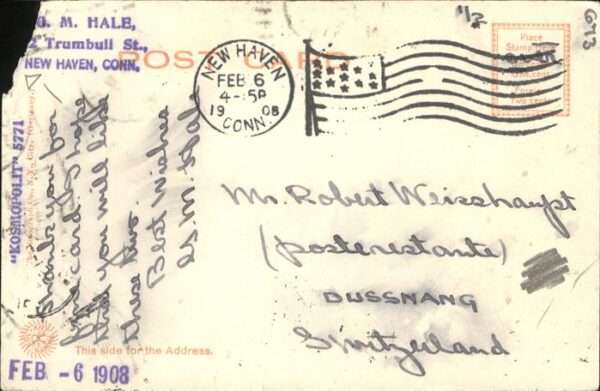 G. M. HALE,
2 Trumbull St.,
NEW HAVEN, CONN.
POST CARD
NEW HAVEN
FEB 6
4-5P
19 08
CONN.
1/2
G73
Place
Stamp
Two cent
"KOSMOPOLIT" 5771
Thanks you for
fine card. I hope
that you will like
these two.
Best Wishes
G. M. Hale
Mr. Robert Weisshaupt
(posterestante)
DUSSNANG
Switzerland
This side for the Address.
FEB -6 1908